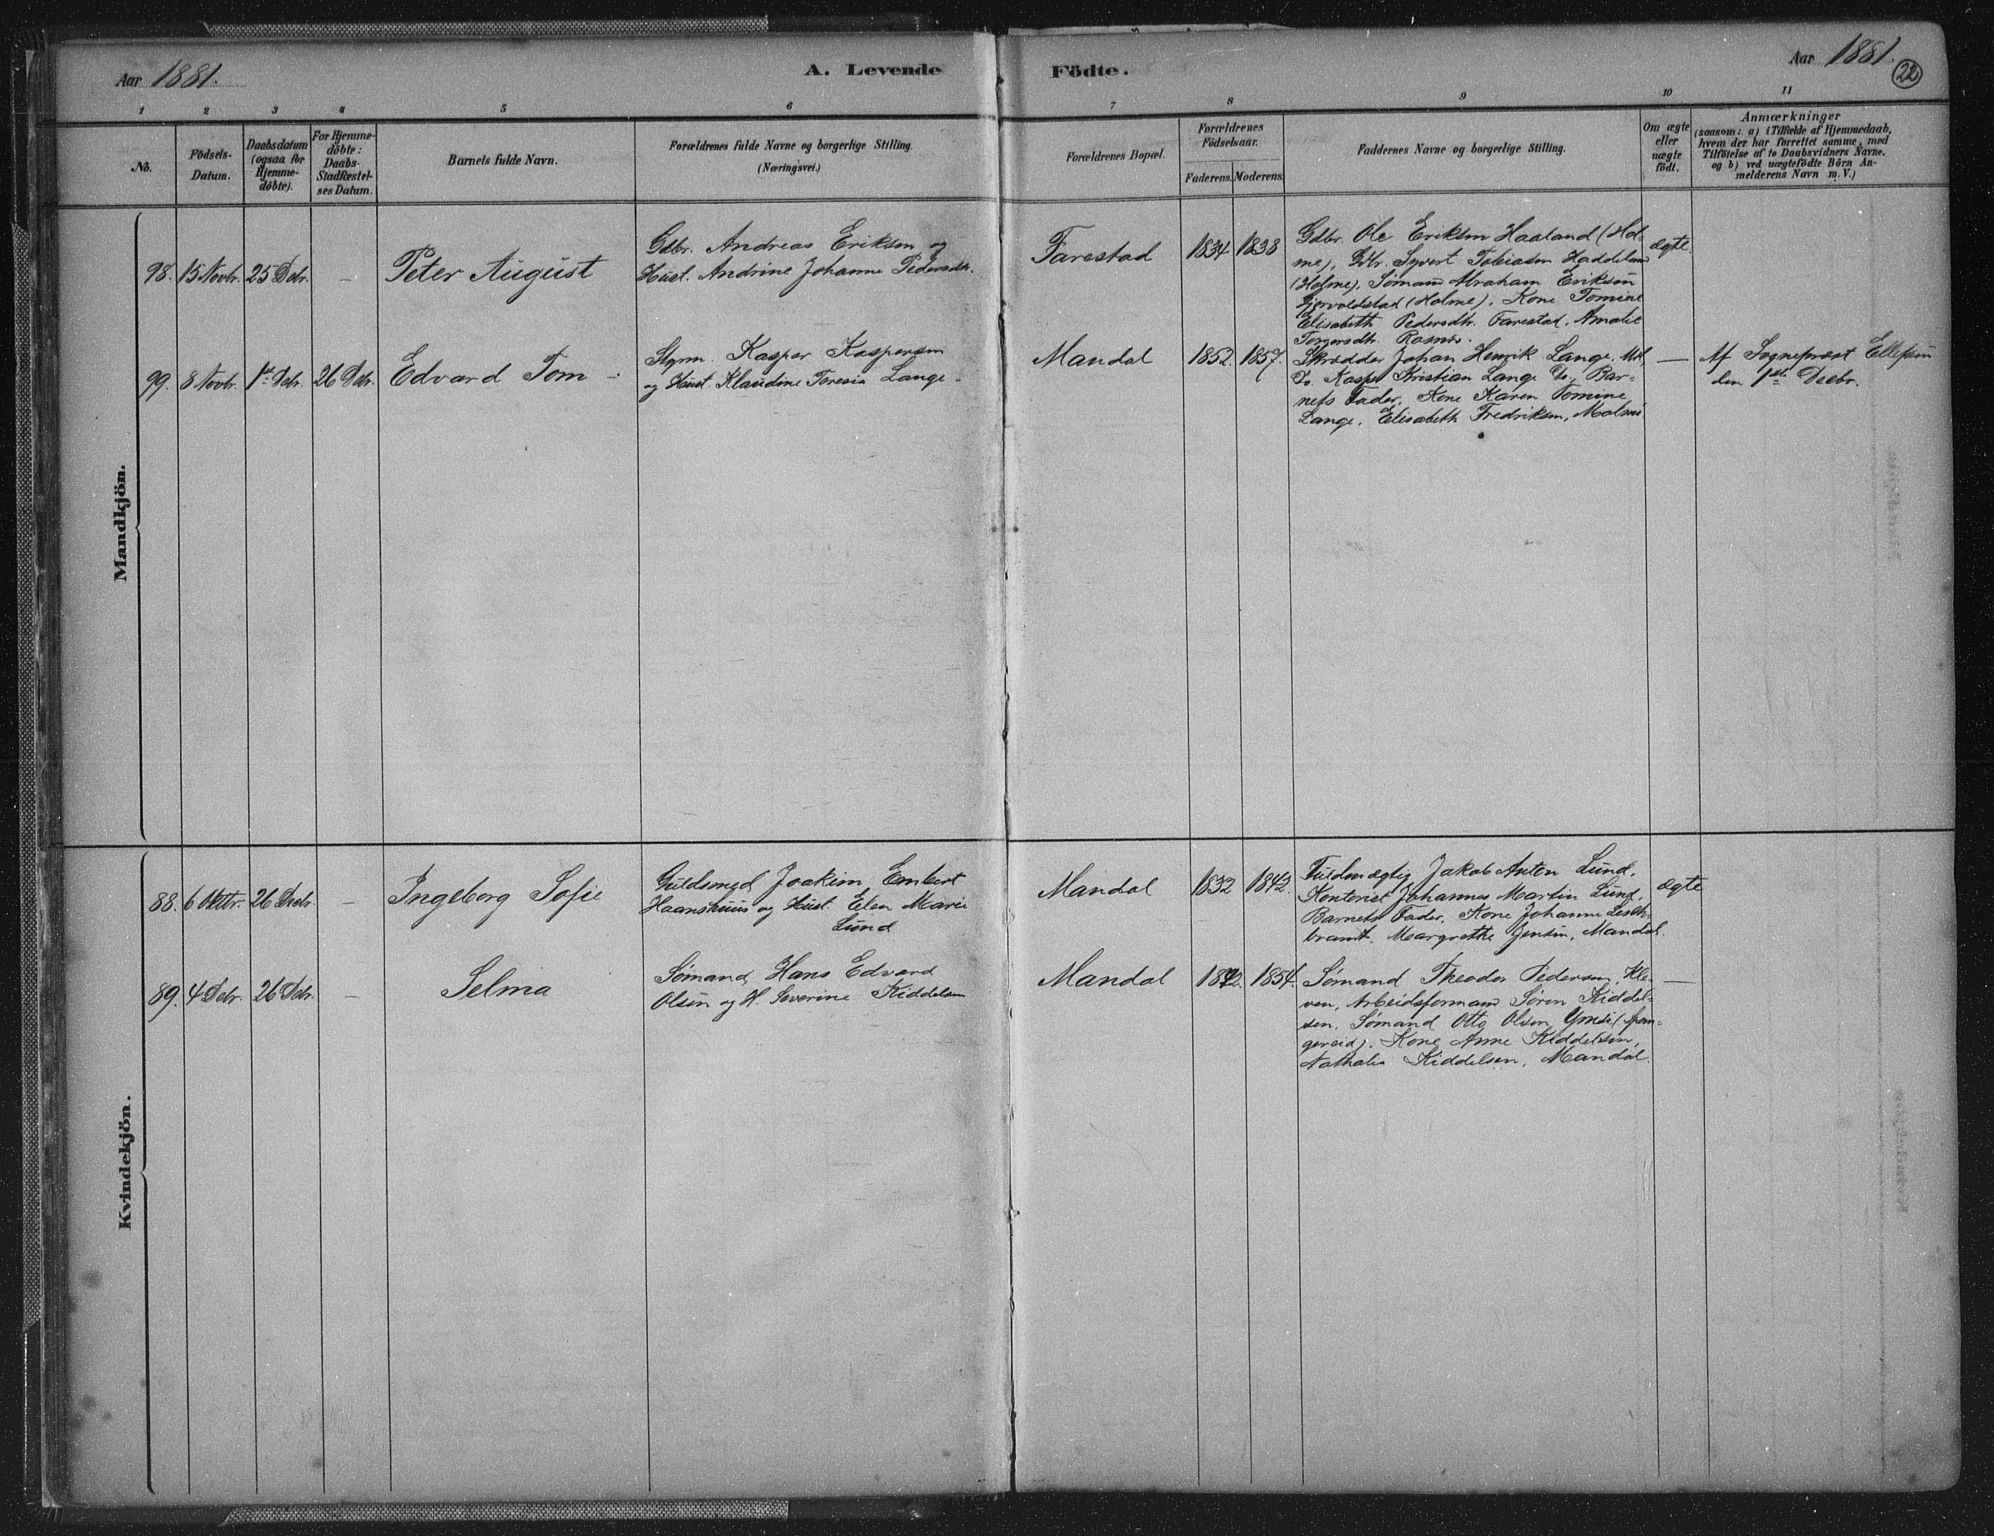 Aar 1881.
A. Levende
Födte.
Aar 1881.
22
1 2 3 4 5 6 7 8 9 10 11
No.
Födsels-
Datum.
Daabsdatum
(ogsaa for
Hjemme-
döbte).
For Hjemme-
döbte:
Daabs-
Stadfæstel-
ses Datum.
Barnets fulde Navn.
Forældrenes fulde Navne og borgerlige Stilling.
(Næringsvei.)
Forældrenes Bopæl.
Forældrenes
Födselsaar.
Faderens. Moderens.
Faddernes Navne og borgerlige Stilling.
Om ægte
eller
uægte
födt.
Anmærkninger
(saasom: a) i Tilfælde af Hjemmedaab,
hvem der har forrettet samme, med
Tilföielse af to Daabsvidners Navne,
og b) ved uægtefödte Börn An-
melderens Navn m. V.)
Mandkjön.
98. 15 Novbr. 25 Debr. - Peter August
Gdbr. Andreas Eriksen og
Hust. Andrine Johanne Pedersdtr.
Farestad 1834 1838
Gdbr. Ole Eriksen Haaland (Hol-
me), Gdbr. Syvert Tobiasen Haddeland
(Holme), Sømand Abraham Eriksen
(Holme), Kone Tomine
Elisabeth Pedersdtr. Farestad, Amalie
Torgersdtr. Rosnes.
ægte
99. 8 Novbr. 1ste Debr. 26 Debr. Edvard Tom -
Styrm. Kasper Kaspersen
og Hust. Klaudine Teresia Lange.
Mandal 1852. 1857.
Skrædder Johan Henrik Lange, Mdl,
Do. Kasper Kristian Lange Do, Bar-
nets Fader, Kone Karen Tomine
Lange, Elisabeth Fredriksen, Malmø
—
Af Sognepræst Ellefsen
den 1ste Decbr.
Kvindekjön.
88. 6 Oktbr. 26 Decbr. - Ingeborg Sofie
Guldsmed Joakim Embert
Haanshuus og Hust. Elen Marie
Lund
Mandal 1832 1842.
Fuldmægtig Jakob Anton Lund,
Kontorist Johannes Martin Lund,
Barnets Fader, Kone Johanne Lesch-
brandt, Margrethe Jensen, Mandal.
ægte
89. 4 Debr. 26 Debr. - Selma
Sømand Hans Edvard
Olsen og H. Severine Kiddelsen
Mandal 1842. 1854.
Sømand Theodor Pedersen, Kle-
ven, Arbeidsformand Søren Kiddel-
sen, Sømand Otto Olsen Ymse (Span-
gereid). Kone Anne Kiddelsen,
Nathalia Kiddelsen, Mandal.
—